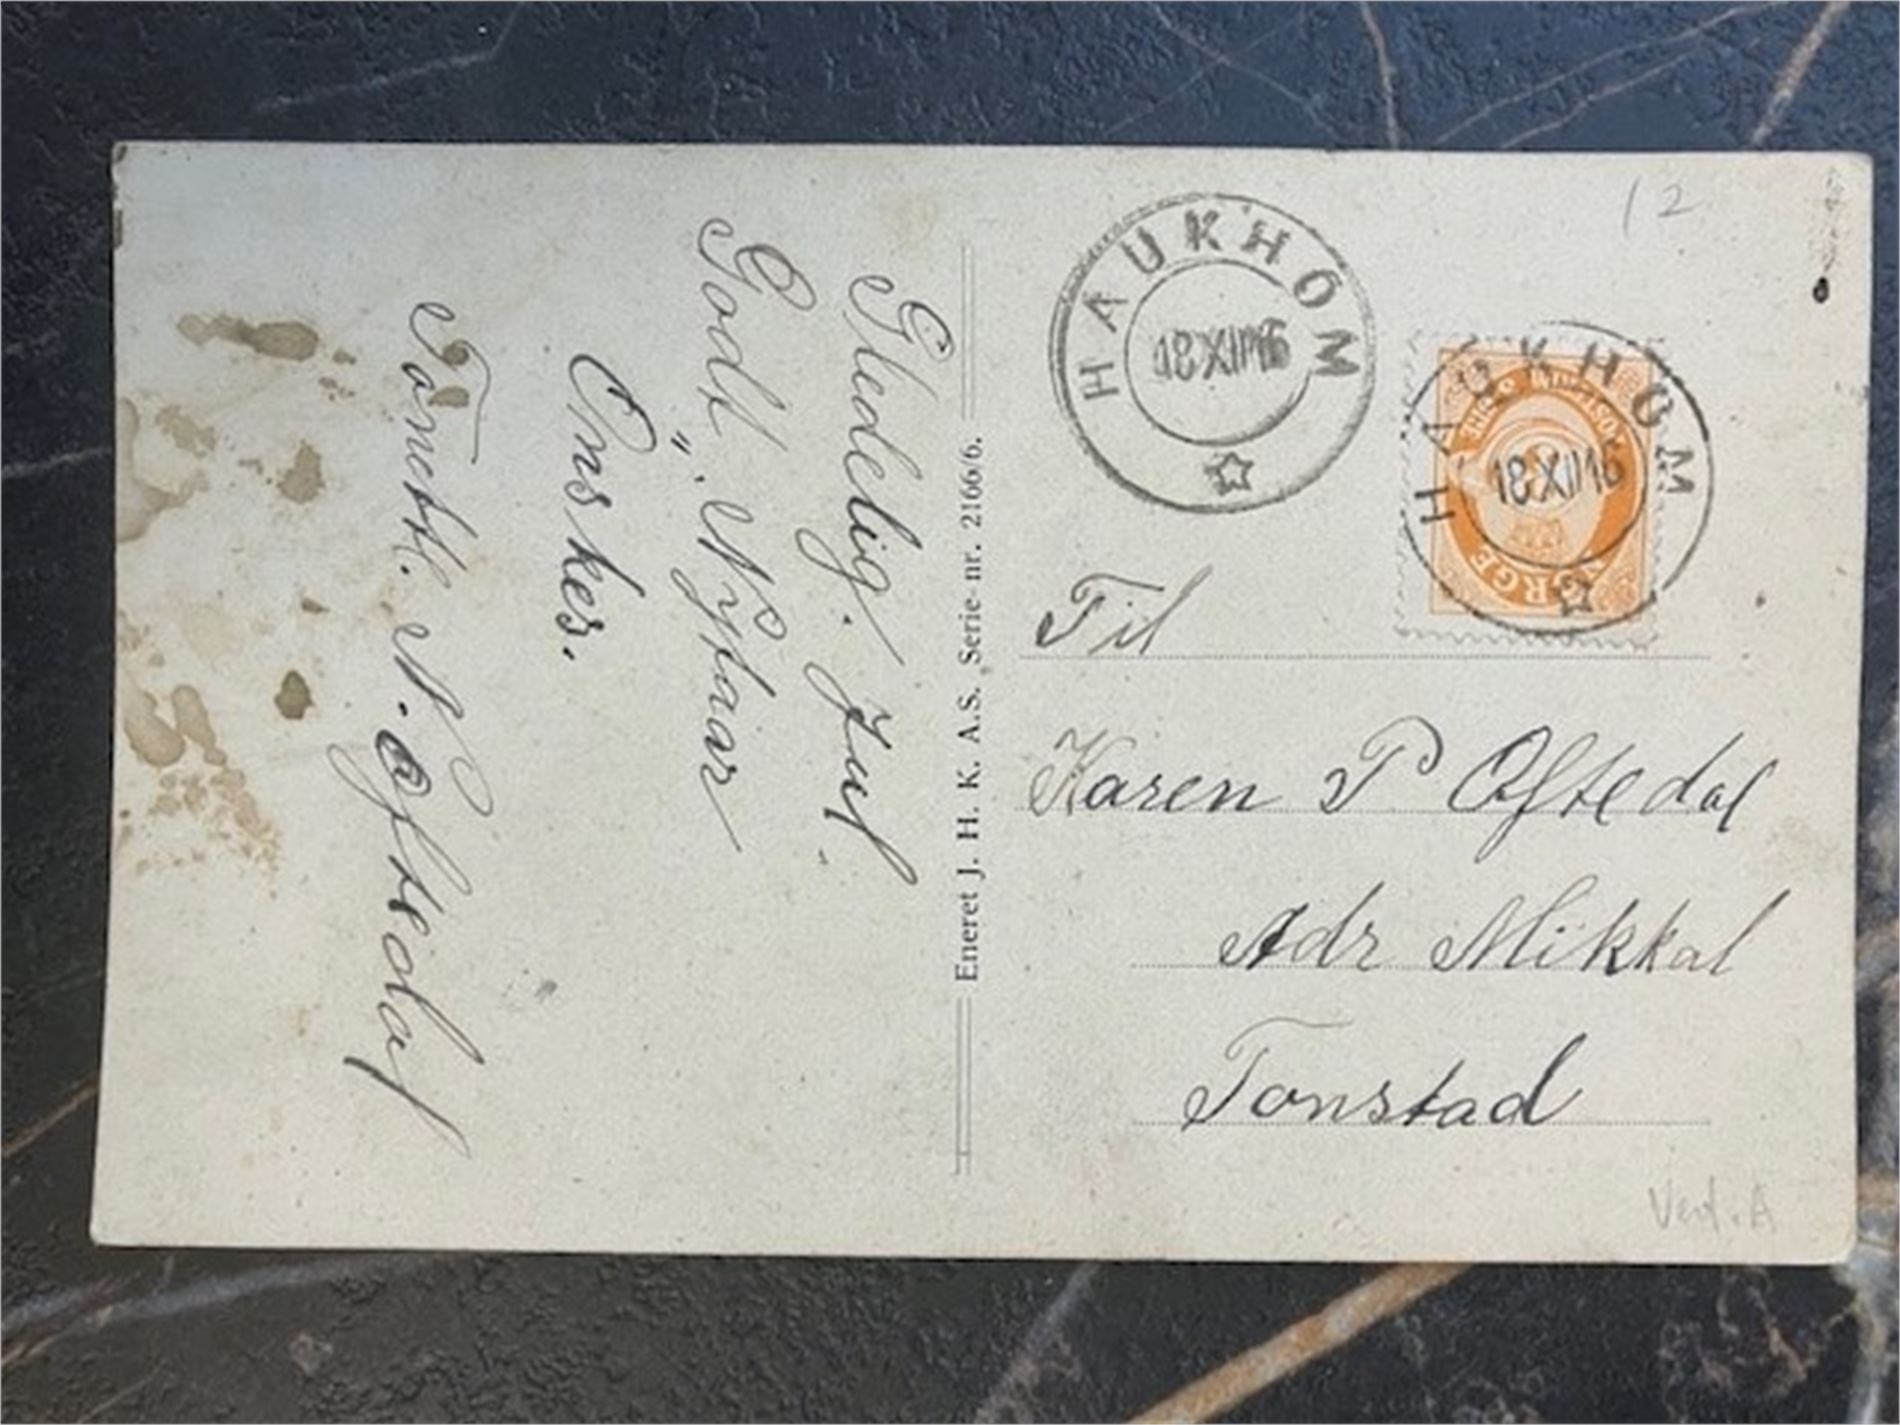 Gledelig. Jul.
Godt ". Nytaar
Ønskes.
Tonett. N. Oftedal
Eneret J. H. K. A.S. Serie- nr. 2166/6.
12
HAUKHOM
18 XII 16
HAUKHOM
18 XII 16
NORGE
Til
Karen P Oftedal
Adr Mikkal
Tonstad